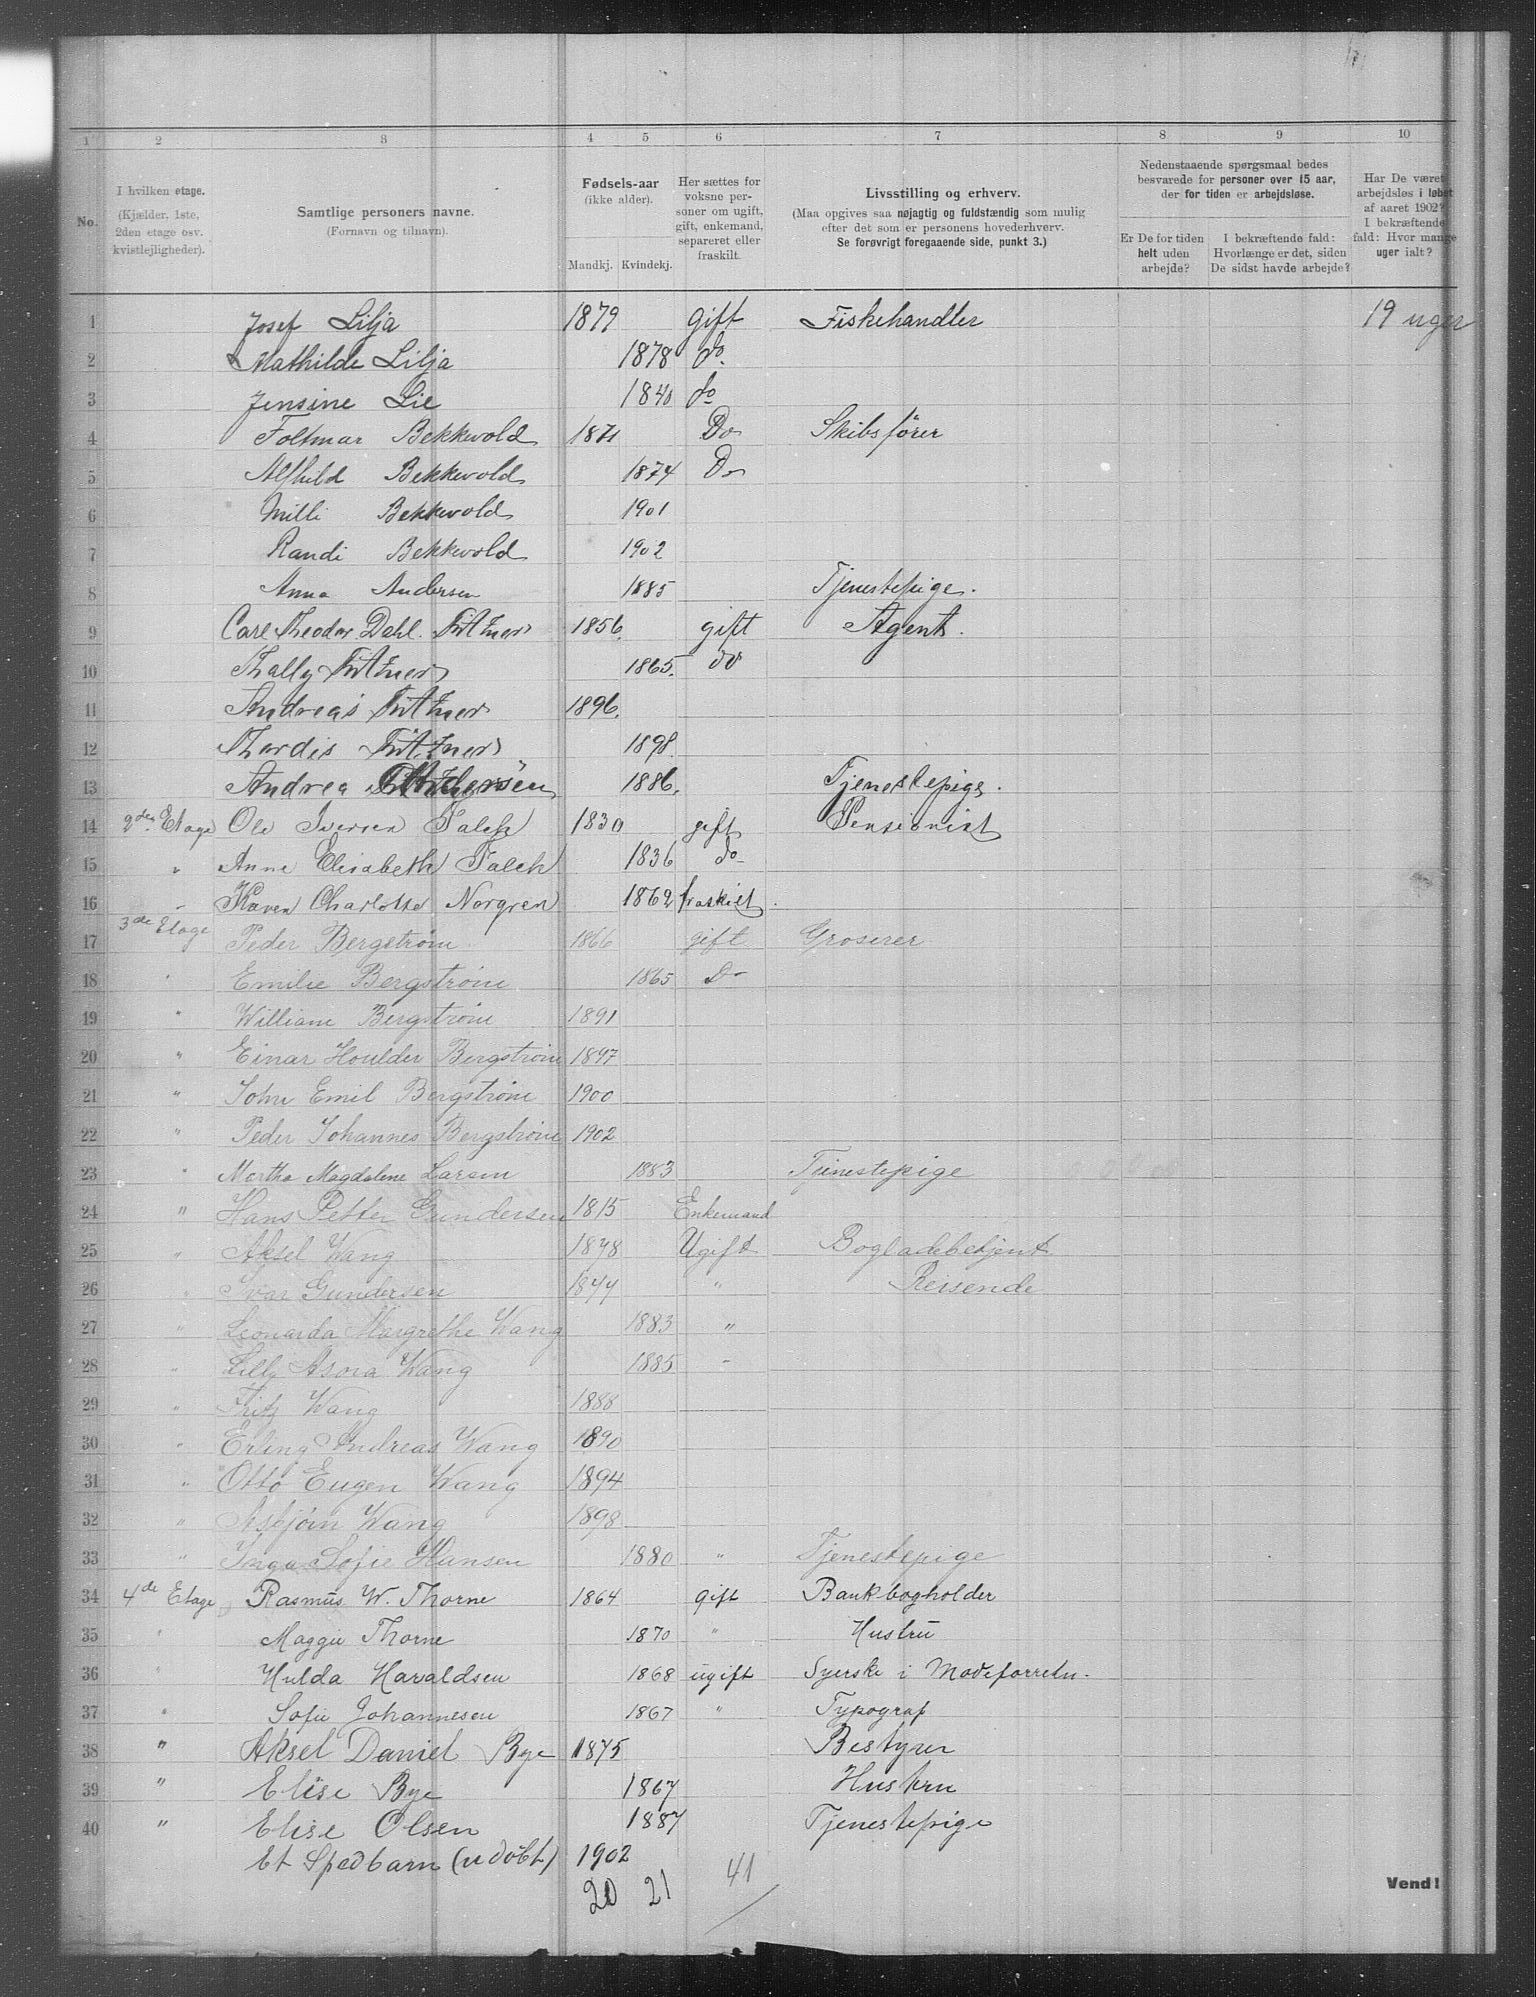 1 2 3 4 5 6 7 8 9 10
No.
I hvilken etage.
(Kjælder, 1ste,
2den etage osv.
kvistlejligheder).
Samtlige personers navne.
(Fornavn og tilnavn).
Fødsels-aar
(ikke alder).
Mandkj. Kvindekj.
Her sættes for
voksne per-
soner om ugift,
gift, enkemand,
separeret eller
fraskilt.
Livsstilling og erhverv.
(Maa opgives saa nøjagtig og fuldstændig som mulig
efter det som er personens hovederhverv.
Se forøvrigt foregaaende side, punkt 3.)
Nedenstaaende spørgsmaal bedes
besvarede for personer over 15 aar,
der for tiden er arbejdsløse.
Er De for tiden
helt uden
arbejde?
I bekræftende fald:
Hvorlænge er det, siden
De sidst havde arbejde?
Har De været
arbejdsløs i løbet
af aaret 1902?
I bekræftende
fald: Hvor mange
uger ialt?
1 Josef Lilja 1879 gift Fiskehandler 19 uger
2 Mathilde Lilja 1878 do.
3 Jensine Lie 1840 do
4 Foltmar Bekkevold 1871 Do Skibsfører
5 Alfhild Bekkevold 1874 Do
6 Milli Bekkevold 1901
7 Randi Bekkevold 1902
8 Anna Andersen 1885 Tjenestepige.
9 Carl Theodor Dahl. 1856. gift Agent.
10 Thally 1865. do
11 Andreas 1896.
12 Thordis 1898.
13 Andrea Andersen 1886. Tjenestepige.
14 2den Etage Ole Iversen Falch 1830 gift Pensionist
15 " Anne Elisabeth Falch 1836 do
16 " Karen Charlotte Norgren 1862 fraskilt.
17 3de Etage Peder Bergstrøm 1866 gift Groserer
18 " Emilie Bergstrøm 1865 Do
19 " William Bergstrøm 1891
20 " Einar Houlder Bergstrøm 1897
21 " John Emil Bergstrøm 1900
22 " Peder Johannes Bergstrøm 1902
23 " Martha Magdalene Larsen 1883 Tjinestepige
24 " Hans Petter Gundersen 1815 Enkemand
25 " Aksel Wang 1878 Ugift Bogladebetjent
26 " Ivar Gundersen 1877 " Reisende
27 " Leonarda Margrethe Wang 1883 "
28 " Lilly Asora Wang 1885 "
29 " Fritz Wang 1888
30 " Erling Andreas Wang 1890
31 " Otto Eugen Wang 1894
32 " Asbjørn Wang 1898
33 " Inga Sofie Hansen 1880 " Tjenestepige
34 4de Etage Rasmus W. Thorne 1864 gift Bankbogholder
35 " Maggie Thorne 1870 " Hustru
36 " Hulda Haraldsen 1868 ugift Syerske i Modeforretn.
37 " Sofie Johannesen 1867 " Typograf
38 " Aksel Daniel Bye 1875 Bestyrer
39 " Elise Bye 1867 Hustru
40 " Elise Olsen 1887 Tjenestepige
Et Spedbarn (udøbt) 1902
20 21 41
Vend!